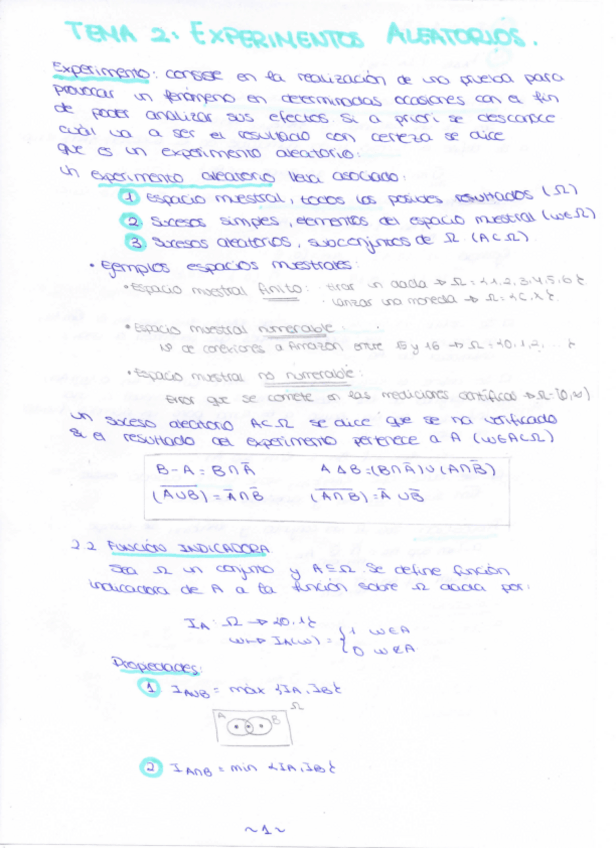 TEMA 2: EXPERIMENTOS ALEATORIOS.
Experimento: consiste en la realización de una prueba para
provocar un fenómeno en determinadas ocasiones con el fin
de poder analizar sus efectos si a priori se desconoce
cuál va a ser el resultado con certeza se dice
que es un experimento aleatorio:
Un experimento aleatorio lleva asociado:
1 Espacio muestral, todos los posibles resultados (Ω)
2 Sucesos simples, elementos del espacio muestral (ω∈Ω)
3 Sucesos aleatorios, subconjuntos de Ω (A⊂Ω)
• Ejemplos espacios muestrales:
• Espacio muestral finito: tirar un dado → Ω = {1,2,3,4,5,6}
lanzar una moneda → Ω = {C,X}
• Espacio muestral numerable:
Nº de conexiones a Amazon entre 15 y 16 → Ω = {0,1,2,...}
• Espacio muestral no numerable:
Error que se comete en las mediciones científicas → Ω=(0,∞)
Un suceso aleatorio A⊂Ω se dice que se ha verificado
si el resultado del experimento pertenece a A (ω∈A⊂Ω)
B-A = B∩Ā A Δ B = (B∩Ā)∪(A∩B̄)
(A̅∪̅B̅) = Ā∩B̄ (A̅∩̅B̅) = Ā∪B̄
2.2 FUNCIÓN INDICADORA
Sea Ω un conjunto y A⊆Ω. Se define función
indicadora de A a la función sobre Ω dada por:
I_A: Ω → {0,1}
ω ↦ I_A(ω) = { 1 ω∈A
0 ω∉A
Propiedades:
1 I_A∪B = máx {I_A, I_B}
Ω
A B
2 I_A∩B = min {I_A, I_B}
~1~